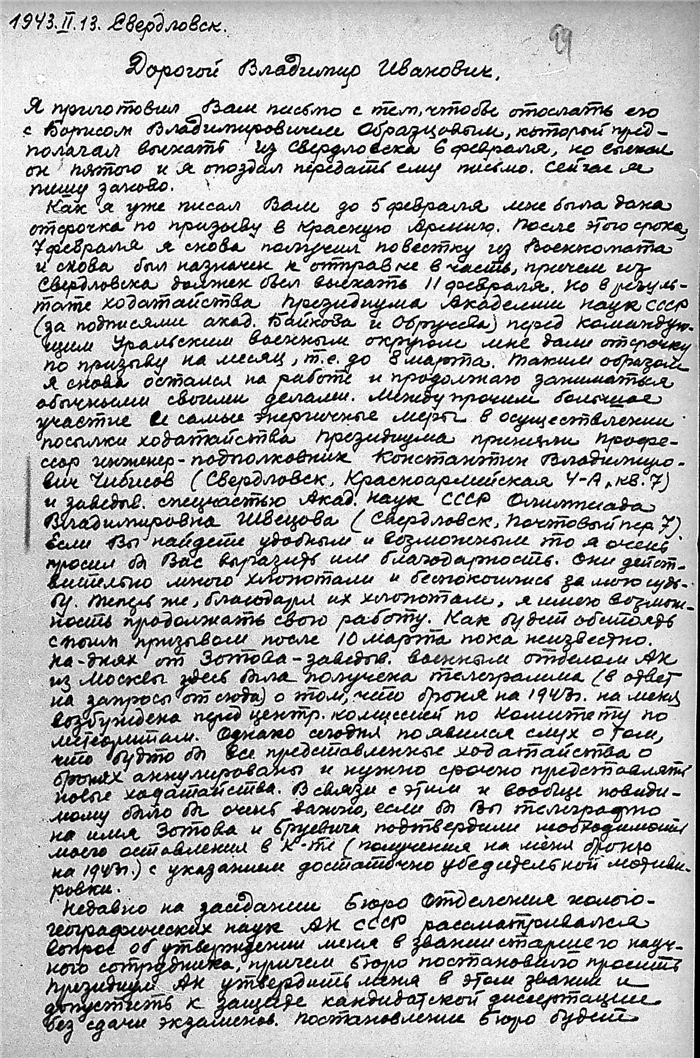 1943.II.13. Свердловск.
99
Дорогой Владимир Иванович,
Я приготовил Вам письмо с тем, чтобы отослать его
с Борисом Владимировичем Образцовым, который пред-
полагал выехать из Свердловска 6 февраля, но выехал
он пятого и я опоздал передать ему письмо. Сейчас я
пишу заново.
Как я уже писал Вам до 5 февраля мне была дана
отсрочка по призыву в Красную Армию. После этого срока,
7 февраля я снова получил повестку из Военкомата
и снова был назначен к отправке в часть, причем из
Свердловска должен был выехать 11 февраля. Но в резуль-
тате ходатайства Президиума Академии наук СССР
(за подписями акад. Байкова и Обручева) перед Командую-
щим Уральским военным округом мне дали отсрочку
по призыву на месяц, т.е. до 8 марта. Таким образом
я снова остался на работе и продолжаю заниматься
обычными своими делами. Между прочим большое
участие и самые энергичные меры в осуществлении
посылки ходатайства Президиума приняли профе-
ссор инженер-подполковник Константин Владимиро-
вич Чибисов (Свердловск, Красноармейская 4-А, кв. 7)
и заведыв. спецчастью Акад. наук СССР Олимпиада
Владимировна Швецова (Свердловск, Почтовый пер. 7)
Если Вы найдете удобным и возможным то я очень
просил бы Вас выразить им благодарность. Они дейст-
вительно много хлопотали и беспокоились за мою судь-
бу. Теперь же, благодаря их хлопотам, я имею возмож-
ность продолжать свою работу. Как будет обстоять
с моим призывом после 10 марта пока неизвестно.
На-днях от Зотова-заведыв. военным отделом АН
из Москвы здесь была получена телеграмма (в ответ
на запросы отсюда) о том, что броня на 1943г. на меня
возбуждена перед центр. комиссией по Комитету по
метеоритам. Однако сегодня появился слух о том,
что будто бы все представленные ходатайства о
бронях аннулированы и нужно срочно представлять
новые ходатайства. В связи с этим и вообще повиди-
мому было бы очень важно, если бы Вы телеграфно
на имя Зотова и Бруевича подтвердили необходимость
моего оставления в К-те (получения на меня броню
на 1943г.) с указанием достаточно убедительной мотиви-
ровки.
Недавно на заседании Бюро Отделения геолого-
географических наук АН СССР рассматривался
вопрос об утверждении меня в звании старшего науч-
ного сотрудника, причем Бюро постановило просить
Президиум АН утвердить меня в этом звании и
допустить к защите кандидатской диссертации
без сдачи экзаменов. Постановление Бюро будет